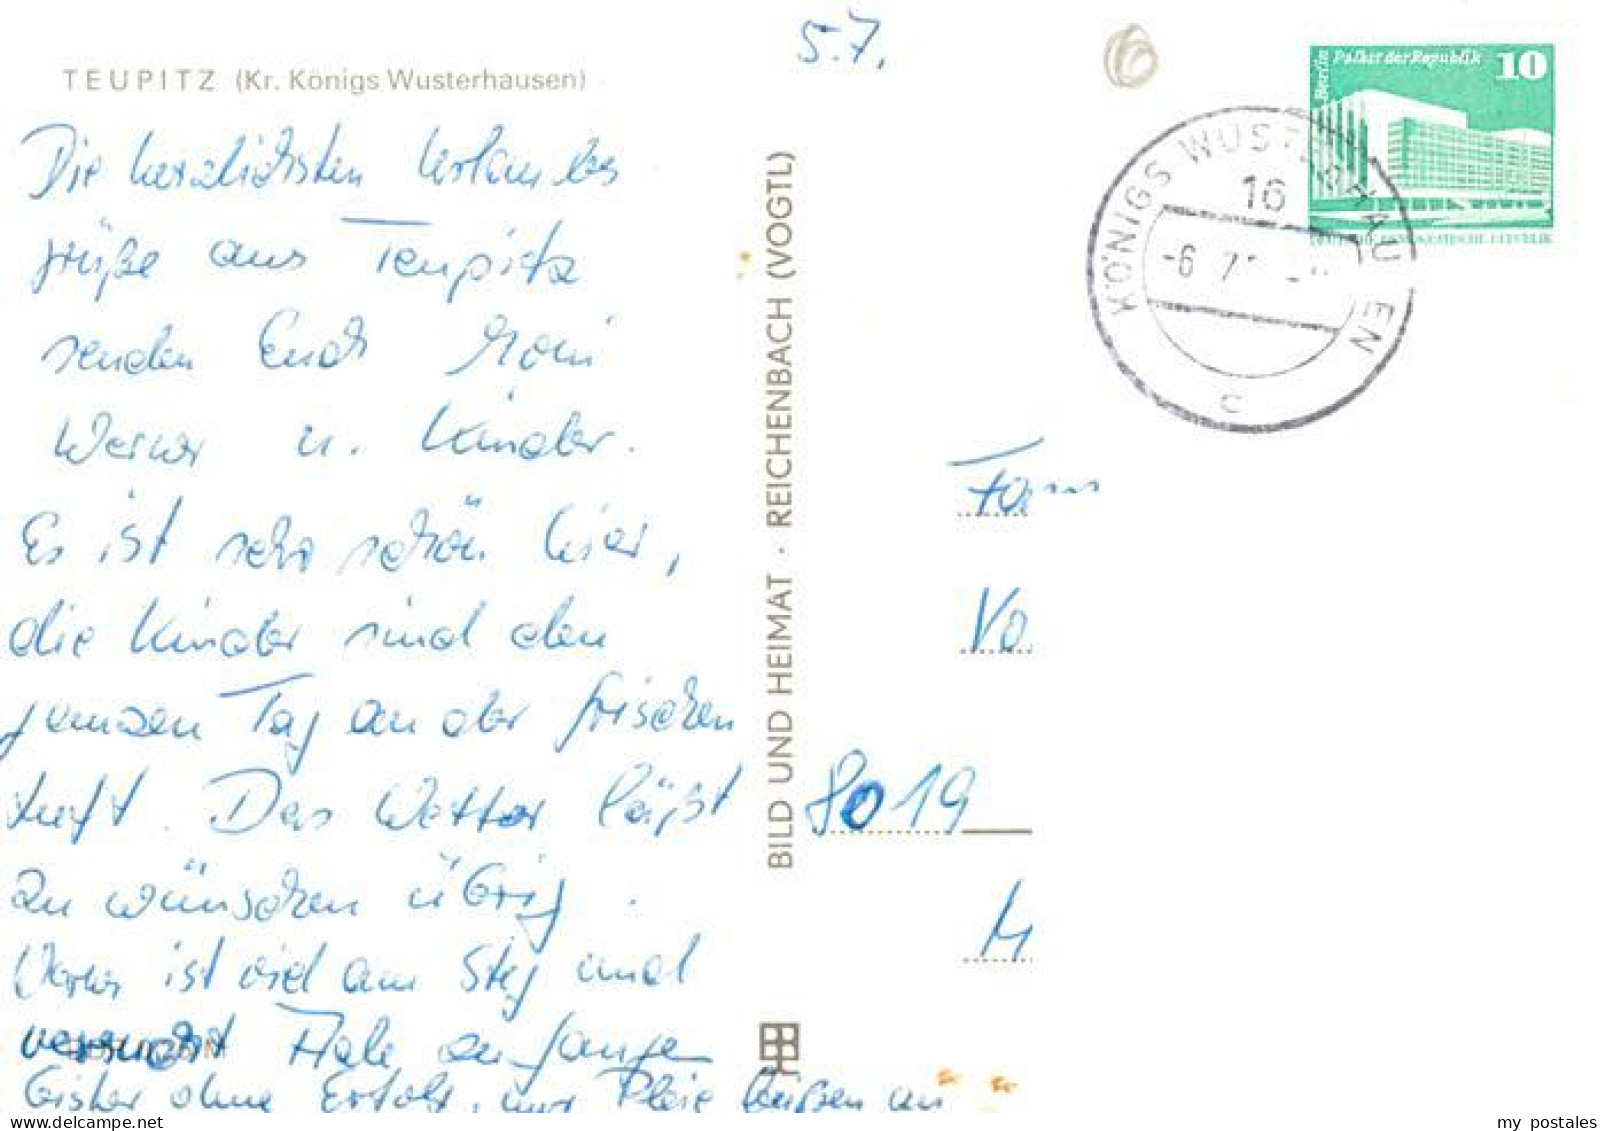 TEUPITZ (Kr. Königs Wusterhausen)
5.7.
6
Berlin Palast der Republik 10
DEUTSCHE DEMOKRATISCHE REPUBLIK
KÖNIGS WUSTERHAUSEN
16
-6. 7.
c
Die herzlichsten Urlaubs
grüße aus Teupitz
senden Euch Moni
Werner u. Kinder.
Es ist sehr schön hier,
die Kinder sind den
ganzen Tag an der frischen
Luft. Das Wetter läßt
zu wünschen übrig.
Werner ist viel am Steg und
versucht Aale zu fangen
bisher ohne Erfolg, nur Pleie beißen an
BILD UND HEIMAT · REICHENBACH (VOGTL)
Fam
Vo
8019
my postales